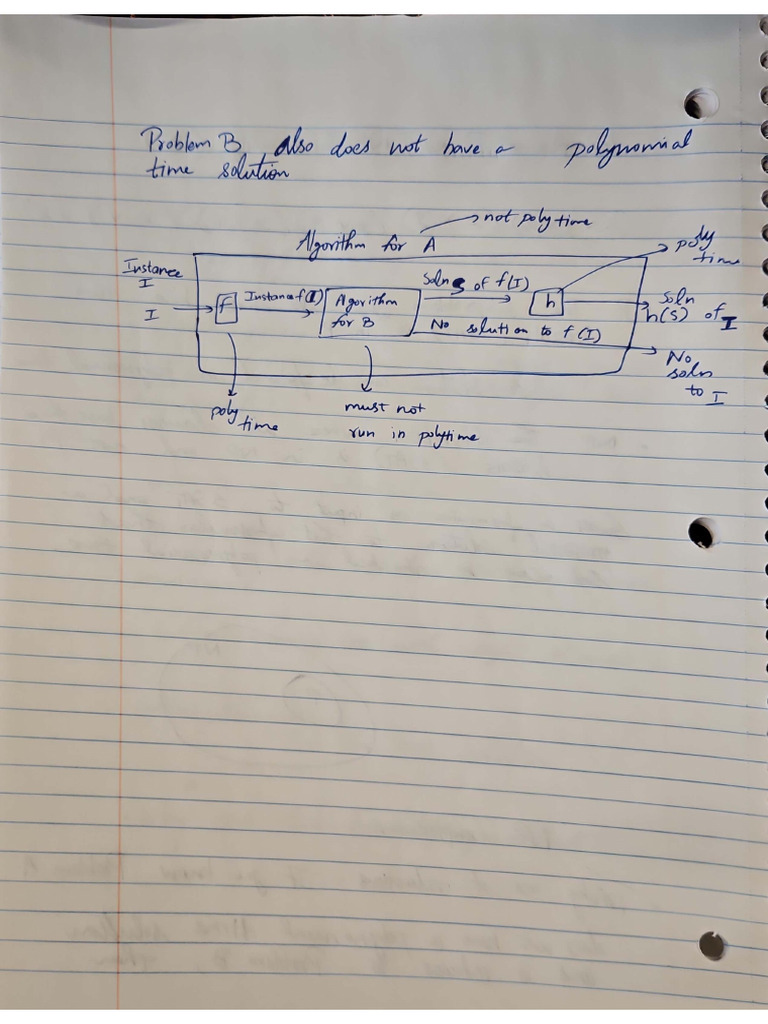 Problem B also does not have a polynomial
time solution
not poly time
Algorithm for A
poly
time
Instance
I
I
f
Instance f(I)
Algorithm
for B
Soln S of f(I)
h
Soln
h(S) of I
No solution to f(I)
No
soln
to I
poly
time
must not
run in polytime